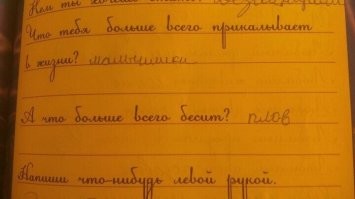 Кем ты
Что тебя больше всего прикалывает
в жизни?
А что больше всего бесит? плов
Напиши что-нибудь левой рукой.